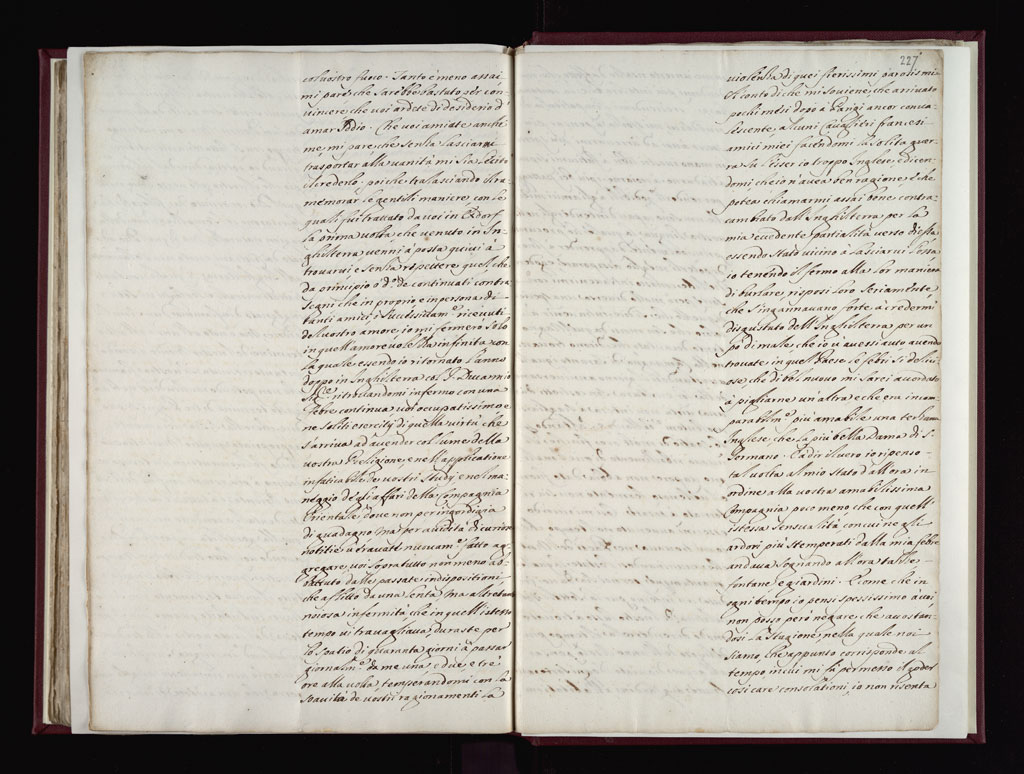 col vostro fuoco. Tanto è meno assai
mi pare, che sarebbe bastato per con-
vincere, che voi ardete di desiderio d'
amar Iddio. Che voi amiate anche
me, mi pare, che senza lasciarmi
trasportar alla vanità mi sia lecito
di crederlo, poiche tralasciando di ra-
memorar le gentili maniere, con le
quali fui trattato da voi in Oxford
la prima volta, che venuto in In-
ghilterra venni à posta quivi à
trovarvi, e senza ripettere quel, che
da principio ò d.º de continuati contra-
segni, che in proprio, e in persona di
tanti amici successivam.e ricevuti
del vostro amore, io mi fermerò solo
in quell'amorevolezza infinita, con
la quale essendo io ritornato l'anno
doppo in Inghilterra col
e ritrovandomi infermo con una
febre continua voi occupatissimo e
ne soliti esercizij di quella virtù, che
s'arriva ad avender col lume della
vostra Religione, e nell'applicatione
infaticabile de vostri studij, e nel ma-
neggio degl'affari della Compagnia
Orientale, dove non per ingordigia
di guadagno, ma per avidità di curiose
notitie v'eravate nuovam.e fatto ag-
gregare, voi sopratutto non meno ab-
battuto dalle passate indispositioni,
che afflitto da una lenta, ma altretanto
noiosa infermità, che in quell'istesso
tempo vi travagliava, duraste per
lo spatio di quaranta giorni à passar
giornalm.e da me una, e due, e trè
ore alla volta, temperandomi con la
soavità de vostri ragionamenti la
227
violenza di quei fierissimi parosismi.
Di conto di che mi soviene, che arrivato
pochi mesi dopo à Parigi ancor conva-
lescente, alcuni Cavalieri francesi
amici miei facendomi la solita guer-
ra su l'esser io troppo Inglese, e dicen-
domi, che io n'avea ben ragione, e che
potea chiamarmi assai bene contra-
cambiato dall'Inghilterra per la
mia eccedente partialità verso di essa
essendo stato vicino à lasciarvi l'ossa
io tenendo il fermo alla lor maniera
di burlare, risposi loro seriamente,
che s'ingannavano forte, à credermi
disgustato dell'Inghilterra per un
pò di male, che io v'avessi avuto avendo
trovate in quel Paese le febri sì delizi-
ose, che di bel nuovo mi sarei accordato
à pigliarne un'altra, e che era incom-
parabilm.e più amabile una terzana
Inglese, che la più bella Dama di S.
Germano. E à dir il vero io ripenso
tal volta al mio stato d'allora in
ordine alla vostra amabilissima
Compagnia poco meno che con quell'
istessa sensualità, con cui negli
ardori più stemperati dalla mia febre
andava sognando allora talle
fontane, e giardini. Come che in
ogni tempo io pensi spessissimo à voi,
non posso però negare, che accostan-
dosi la stagione, nella quale noi
siamo, che appunto corrisponde al
tempo in cui mi fù permesso il goder
così care consolationi, io non risenta